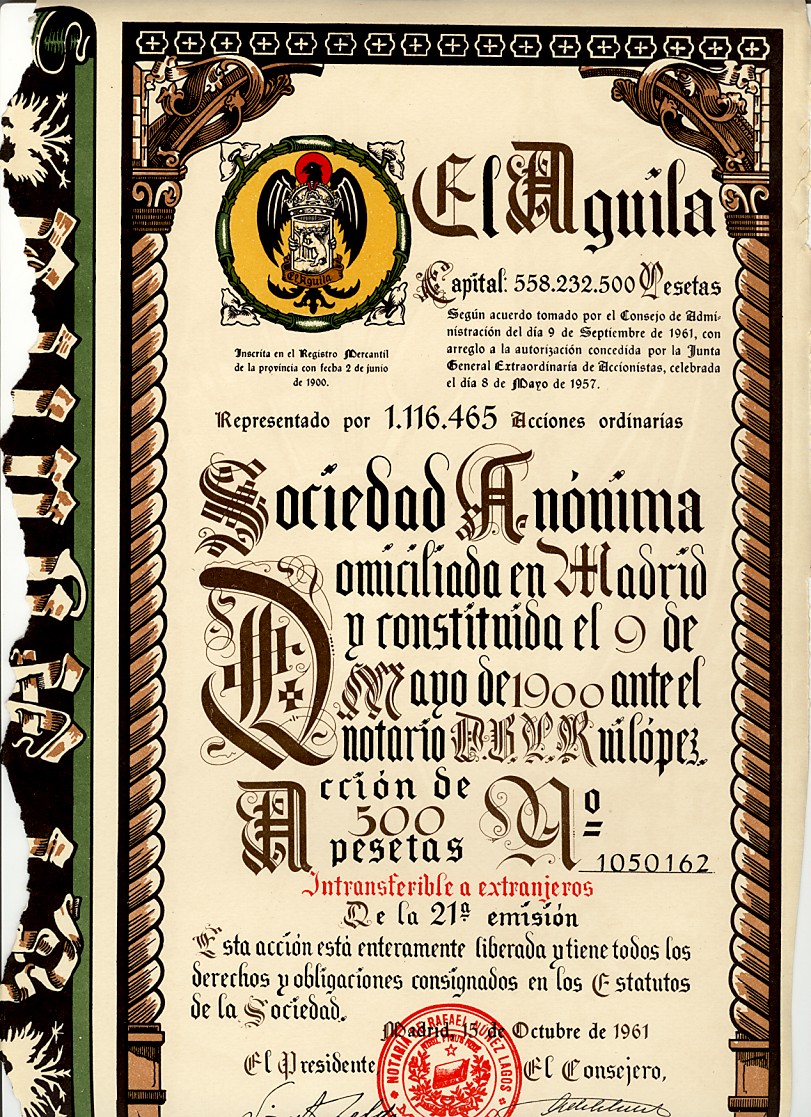 El Aguila
El Aguila
Capital: 558.232.500 Pesetas
Según acuerdo tomado por el Consejo de Admi-
nistración del día 9 de Septiembre de 1961, con
arreglo a la autorización concedida por la Junta
General Extraordinaria de Accionistas, celebrada
el día 8 de Mayo de 1957.
Inscrita en el Registro Mercantil
de la provincia con fecha 2 de junio
de 1900.
Representado por 1.116.465 Acciones ordinarias
Sociedad Anónima
Domiciliada en Madrid
y constituida el 9 de
Mayo de 1900 ante el
notario D. B. L. Ruilópez.
Acción de
500
pesetas
Nº 1050162
Intransferible a extranjeros
De la 21ª emisión
Esta acción está enteramente liberada y tiene todos los
derechos y obligaciones consignados en los Estatutos
de la Sociedad.
Madrid, 15 de Octubre de 1961
El Presidente
El Consejero,
RAFAEL NUÑEZ LAGOS